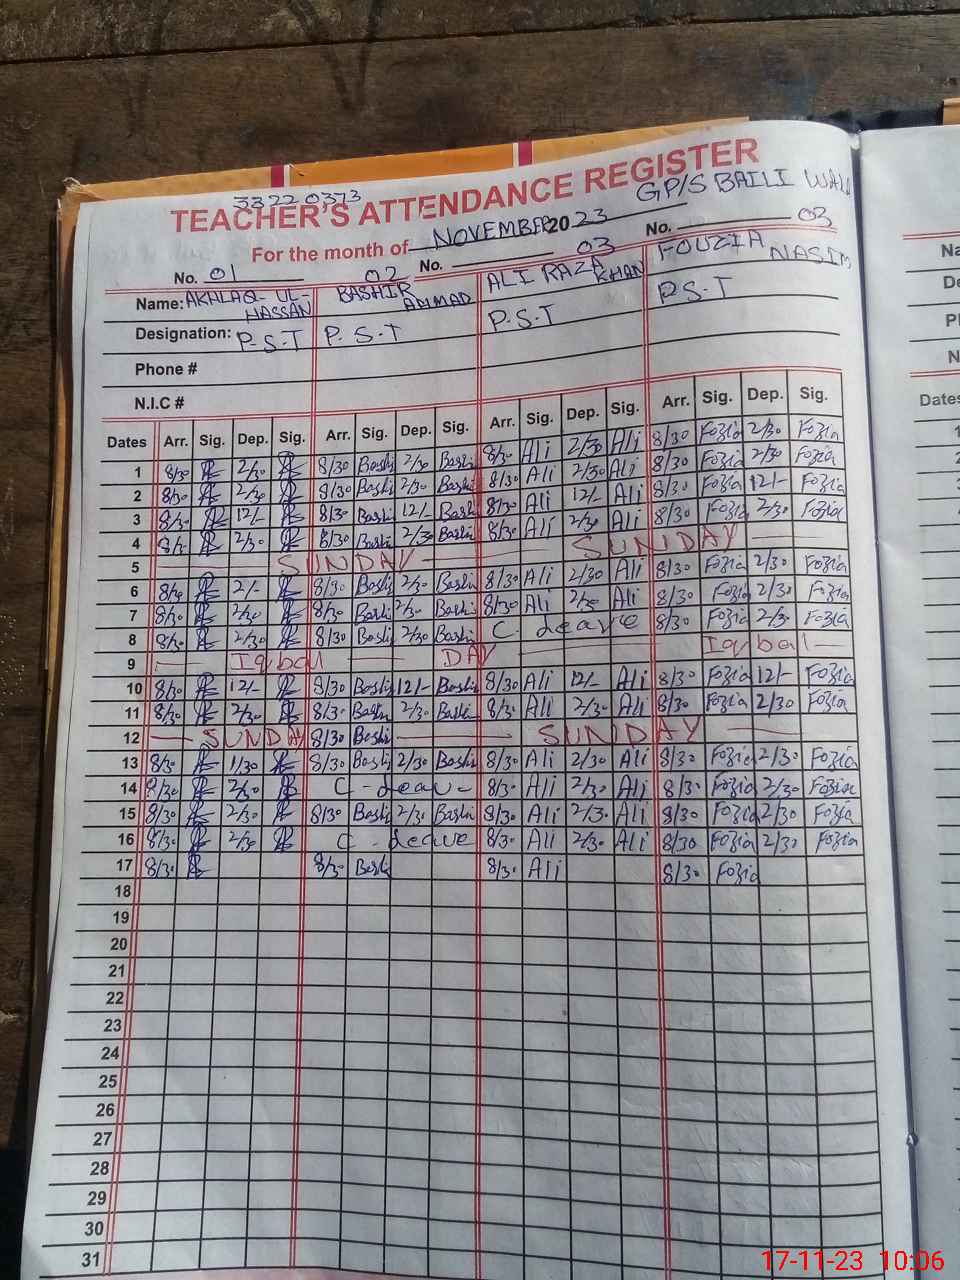 33220373
TEACHER'S ATTENDANCE REGISTER
GP/S BAILI WALA
For the month of NOVEMBER 2023
No. 01 02 No. 03 No. 03
Name: AKHLAQ-UL-HASSAN BASHIR AHMAD ALI RAZA KHAN FOUZIA NASIM
Designation: P.S.T P.S.T P.S.T P.S.T
Phone #
N.I.C #
Dates Arr. Sig. Dep. Sig. Arr. Sig. Dep. Sig. Arr. Sig. Dep. Sig. Arr. Sig. Dep. Sig.
1 8/30 2/30 8/30 Bashi 2/30 Bashi 8/30 Ali 2/30 Ali 8/30 Fozia 2/30 Fozia
2 8/30 2/30 8/30 Bashi 2/30 Bashi 8/30 Ali 2/30 Ali 8/30 Fozia 2/30 Fozia
3 8/30 12/- 8/30 Bashi 12/- Bashi 8/30 Ali 12/- Ali 8/30 Fozia 12/- Fozia
4 8/30 2/30 8/30 Bashi 2/30 Bashi 8/30 Ali 2/30 Ali 8/30 Fozia 2/30 Fozia
5 SUNDAY SUNDAY
6 8/30 2/- 8/30 Bashi 2/30 Bashi 8/30 Ali 2/30 Ali 8/30 Fozia 2/30 Fozia
7 8/30 2/30 8/30 Bashi 2/30 Bashi 8/30 Ali 2/30 Ali 8/30 Fozia 2/30 Fozia
8 8/30 2/30 8/30 Bashi 2/30 Bashi C. Leave 8/30 Fozia 2/30 Fozia
9 Iqbal DAY Iqbal
10 8/30 12/- 8/30 Bashi 12/- Bashi 8/30 Ali 12/- Ali 8/30 Fozia 12/- Fozia
11 8/30 2/30 8/30 Bashi 2/30 Bashi 8/30 Ali 2/30 Ali 8/30 Fozia 2/30 Fozia
12 SUNDAY 8/30 Bashi SUNDAY
13 8/30 1/30 8/30 Bashi 2/30 Bashi 8/30 Ali 2/30 Ali 8/30 Fozia 2/30 Fozia
14 8/30 2/30 C-Leave 8/30 Ali 2/30 Ali 8/30 Fozia 2/30 Fozia
15 8/30 2/30 8/30 Bashi 2/30 Bashi 8/30 Ali 2/30 Ali 8/30 Fozia 2/30 Fozia
16 8/30 2/30 C-Leave 8/30 Ali 2/30 Ali 8/30 Fozia 2/30 Fozia
17 8/30 8/30 Bashi 8/30 Ali 8/30 Fozia
18
19
20
21
22
23
24
25
26
27
28
29
30
31
Dates
17-11-23 10:06